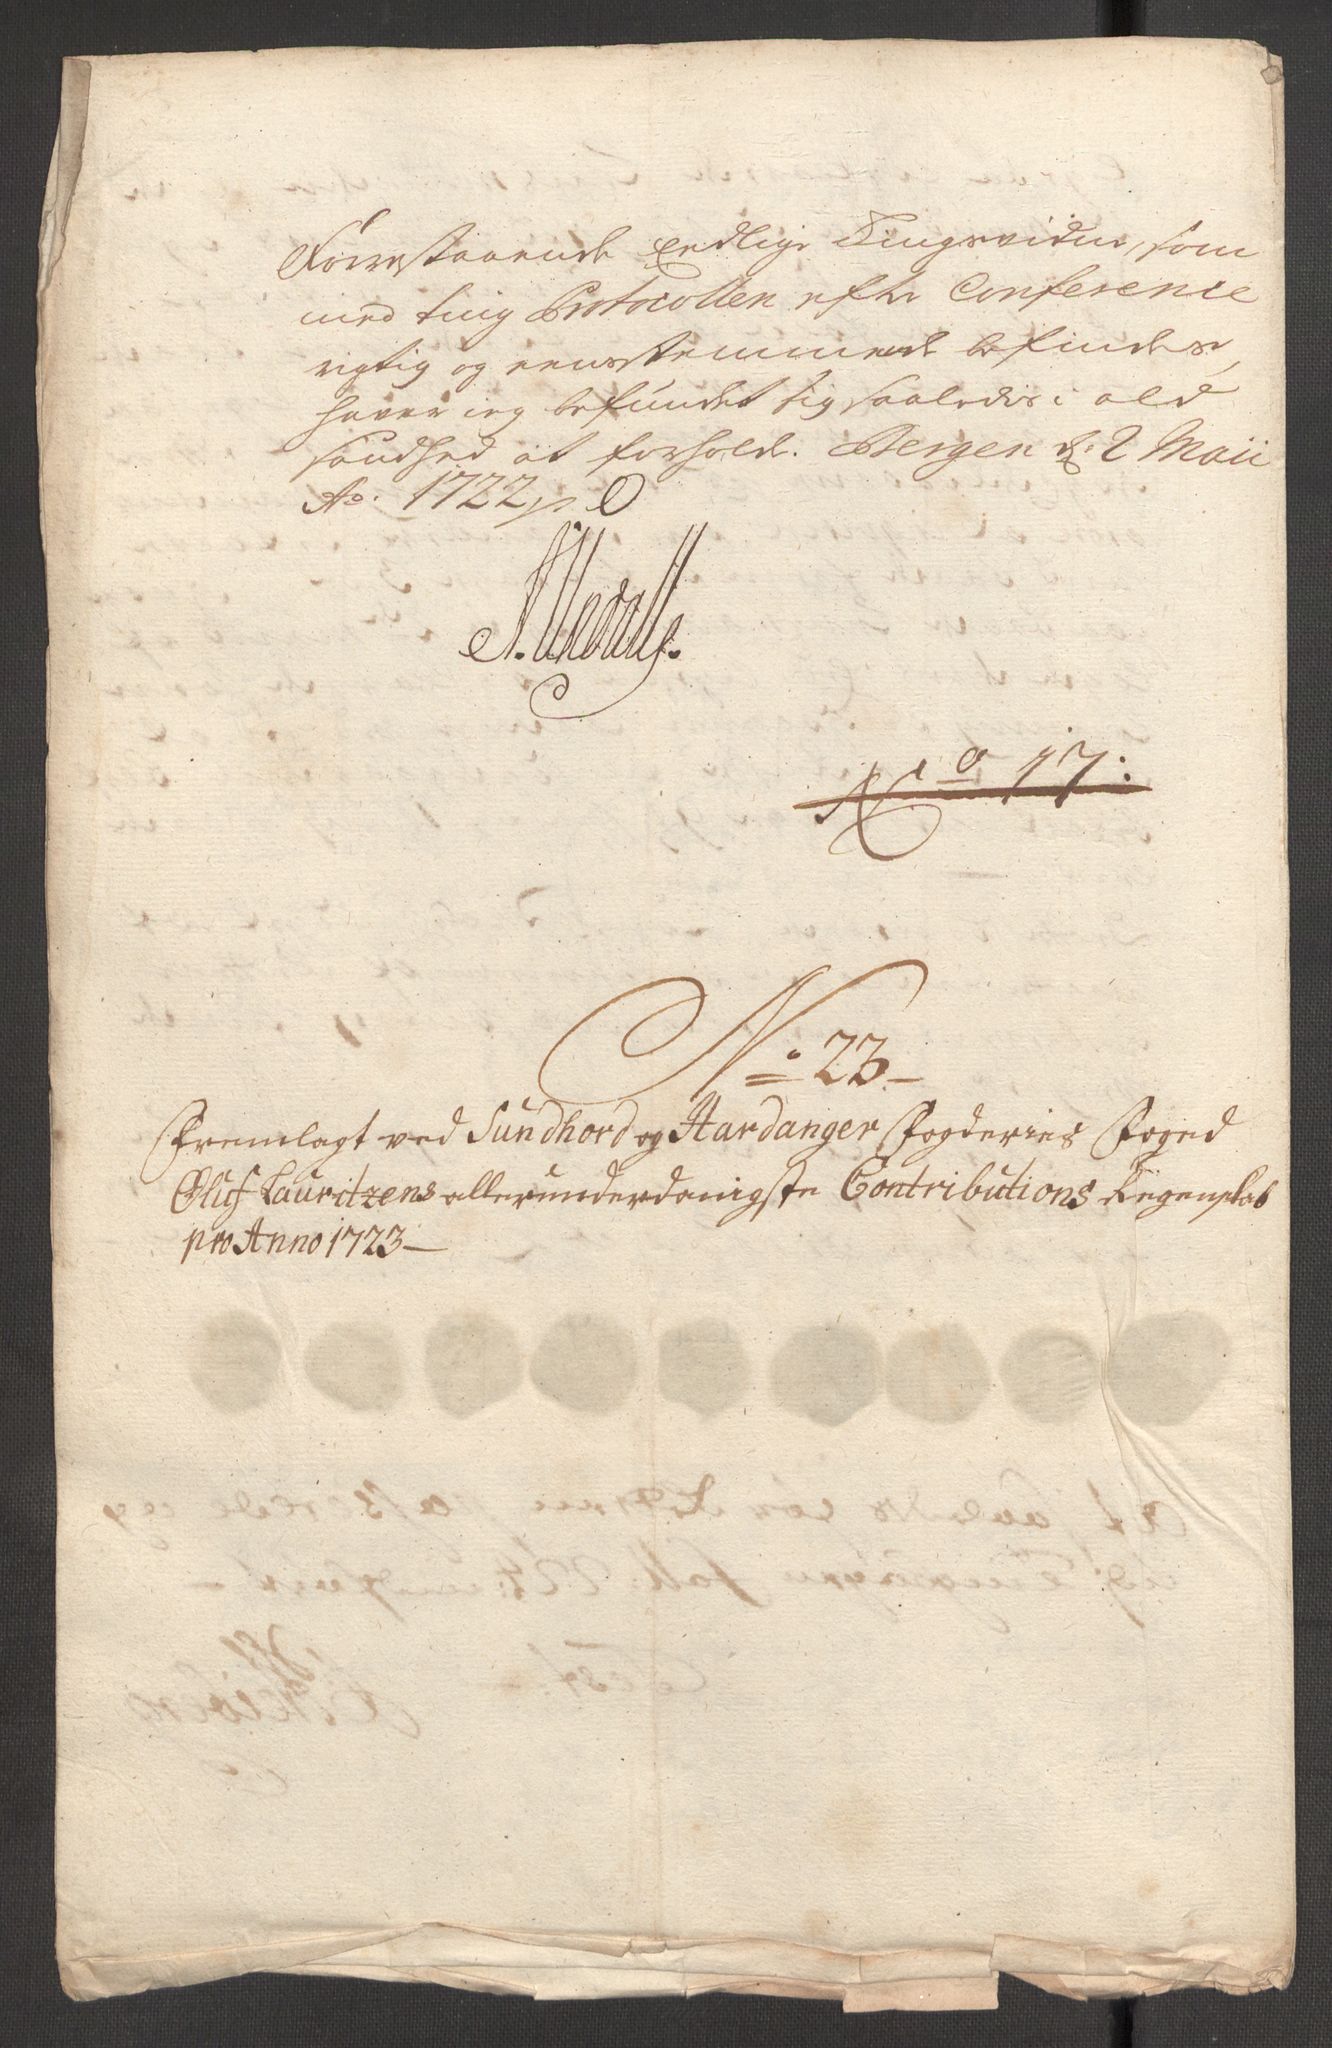 Forrestaaende Edlige Tingsvidne, som
med ting Protocollen efter Conference
rigtig og eenstemmende befindes,
haver ieg befundet sig saaledes i ald
Sandhed at forholde. Bergen d. 2 Maii
Ao. 1722
No 17:
No. 23
Fremlagt ved Sundhord og Hardanger Fogderies Foged
Oluf Lauritzens allerunderdanigste Contributions Regenskab
pro Anno 1723